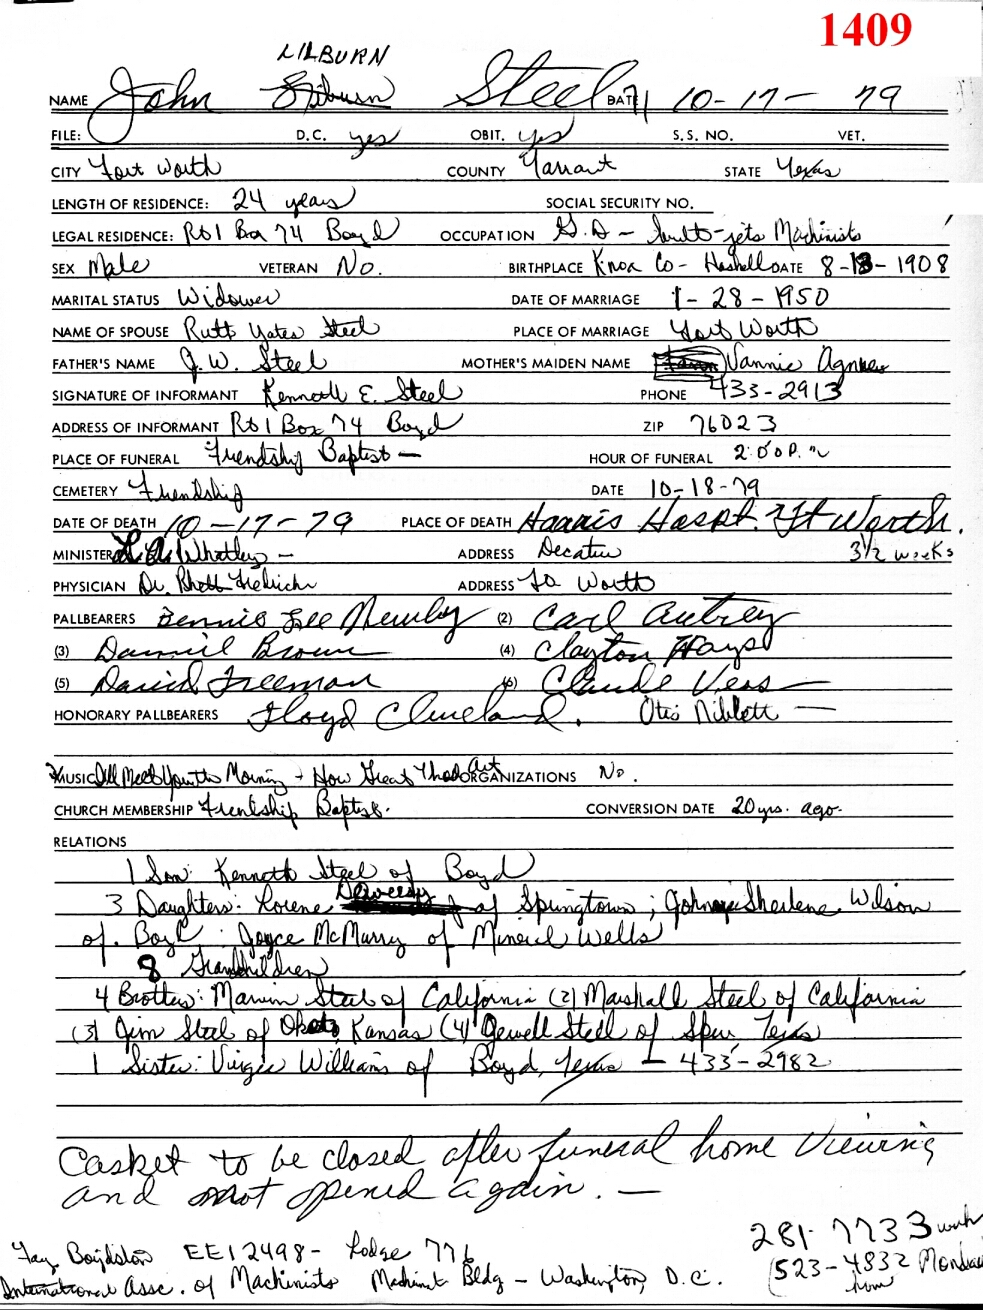 1409
LILBURN
NAME John Steel DATE 10-17-79
FILE: D.C. yes OBIT. yes S.S. NO. VET.
CITY Fort Worth COUNTY Tarrant STATE Texas
LENGTH OF RESIDENCE: 24 years SOCIAL SECURITY NO.
LEGAL RESIDENCE: Rt 1 Box 74 Boyd OCCUPATION G.D - built-jets Machinists
SEX Male VETERAN No. BIRTHPLACE Knox Co - Haskell DATE 8-13-1908
MARITAL STATUS Widower DATE OF MARRIAGE 1-28-1950
NAME OF SPOUSE Ruth Yates Steel PLACE OF MARRIAGE Fort Worth
FATHER'S NAME J.W. Steel MOTHER'S MAIDEN NAME Vannie Agnew
SIGNATURE OF INFORMANT Kenneth E. Steel PHONE 433-2913
ADDRESS OF INFORMANT Rt 1 Box 74 Boyd ZIP 76023
PLACE OF FUNERAL Friendship Baptist - HOUR OF FUNERAL 2:00 P.M
CEMETERY Friendship DATE 10-18-79
DATE OF DEATH 10-17-79 PLACE OF DEATH Harris Hospt. Ft Worth.
MINISTER L.A. Whatley - ADDRESS Decatur 3½ weeks
PHYSICIAN Dr. Rhett ADDRESS Ft Worth
PALLBEARERS Bennie Lee Newby (2) Carl Autrey
(3) Daniel Brown (4) Clayton Hays
(5) David Freeman (6) Claude Vess
HONORARY PALLBEARERS Floyd Cleveland. Otis Niblett -
MUSIC I'll Meet You in the Morning + How Great Thou Art ORGANIZATIONS No.
CHURCH MEMBERSHIP Friendship Baptist. CONVERSION DATE 20 yrs. ago.
RELATIONS
1 Son: Kenneth Steel of Boyd
3 Daughters: Lorene of Springtown; Sherlene Wilson
of. Boyd: Joyce McMurry of Mineral Wells
8 Grandchildren
4 Brothers: Marvin Steel of California (2) Marshall Steel of California
(3) Jim Steel of Kansas (4) Jewell Steel of Spur, Texas
1 Sister: Virgie Williams of Boyd, Texas - 433-2982
Casket to be closed after funeral home viewing
and not opened again. -
281-7733 work
Fay Boydston EE12498- Lodge 776
(523-4832 Monday
International Assc. of Machinists Machinist Bldg - Washington, D.C. home